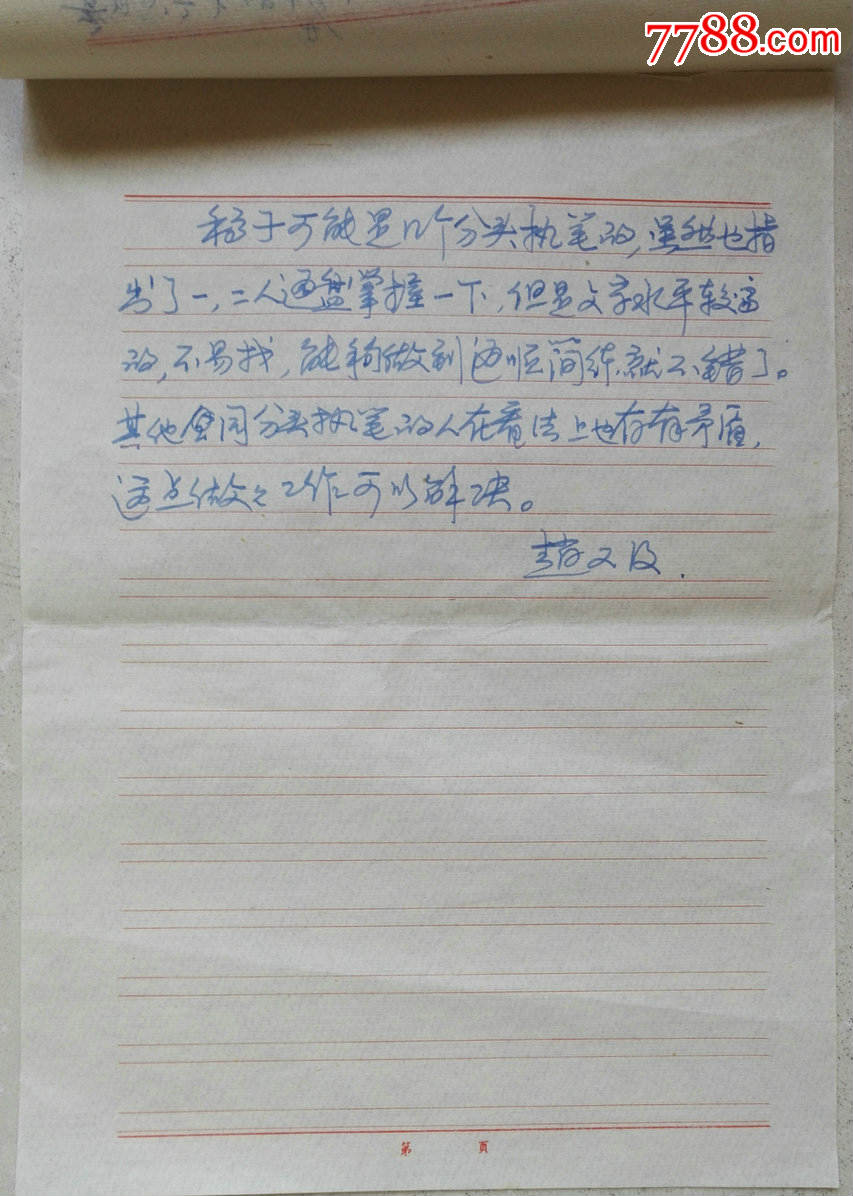 7788.com
稿子可能是几个分头执笔的,虽然也指
出了一,二人通盘掌握一下,但是文字水平较高
的,不易找,能够做到通顺简练就不错了。
其他合同分头执笔的人在看法上也存有矛盾,
这点做々工作可以解决。
赵文
第 页